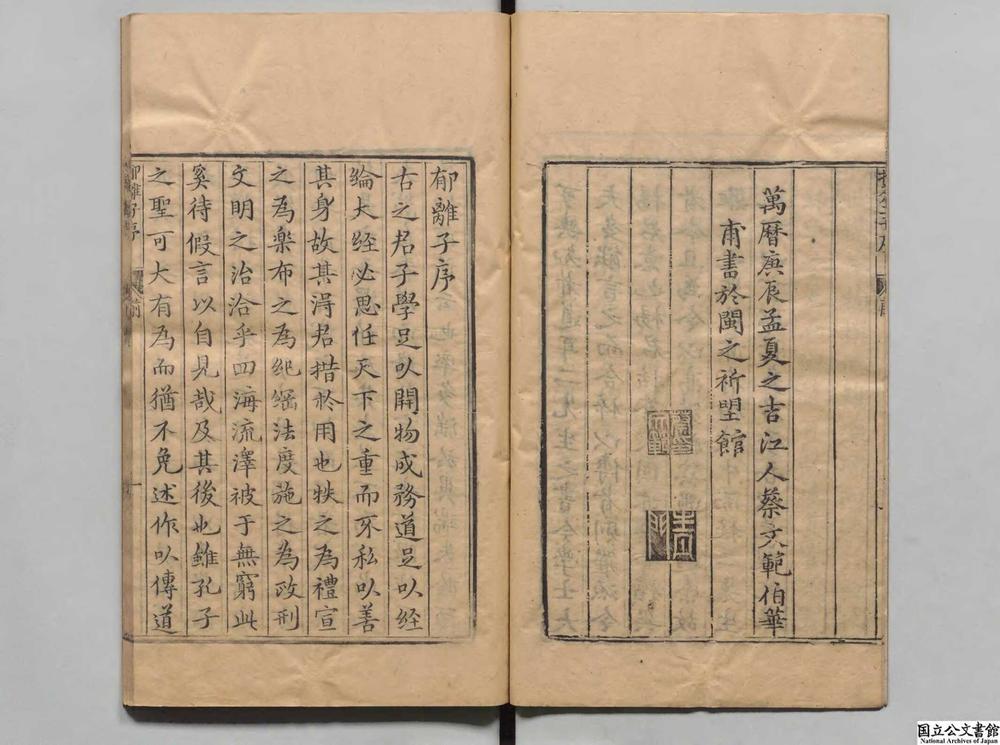 萬曆庚辰孟夏之吉江人蔡文範伯華
甫書於閩之祈朢館
郁離子序
古之君子學足以開物成務道足以經
綸大経必思任天下之重而不私以善
其身故其淂君措於用也秩之為禮宣
之為楽布之為紀綱法度施之為政刑
文明之治洽乎四海流澤被于無窮此
奚待假言以自見哉及其後也雖孔子
之聖可大有為而猶不免述作以傳道
郁離子序
前
一
国立公文書館
National Archives of Japan